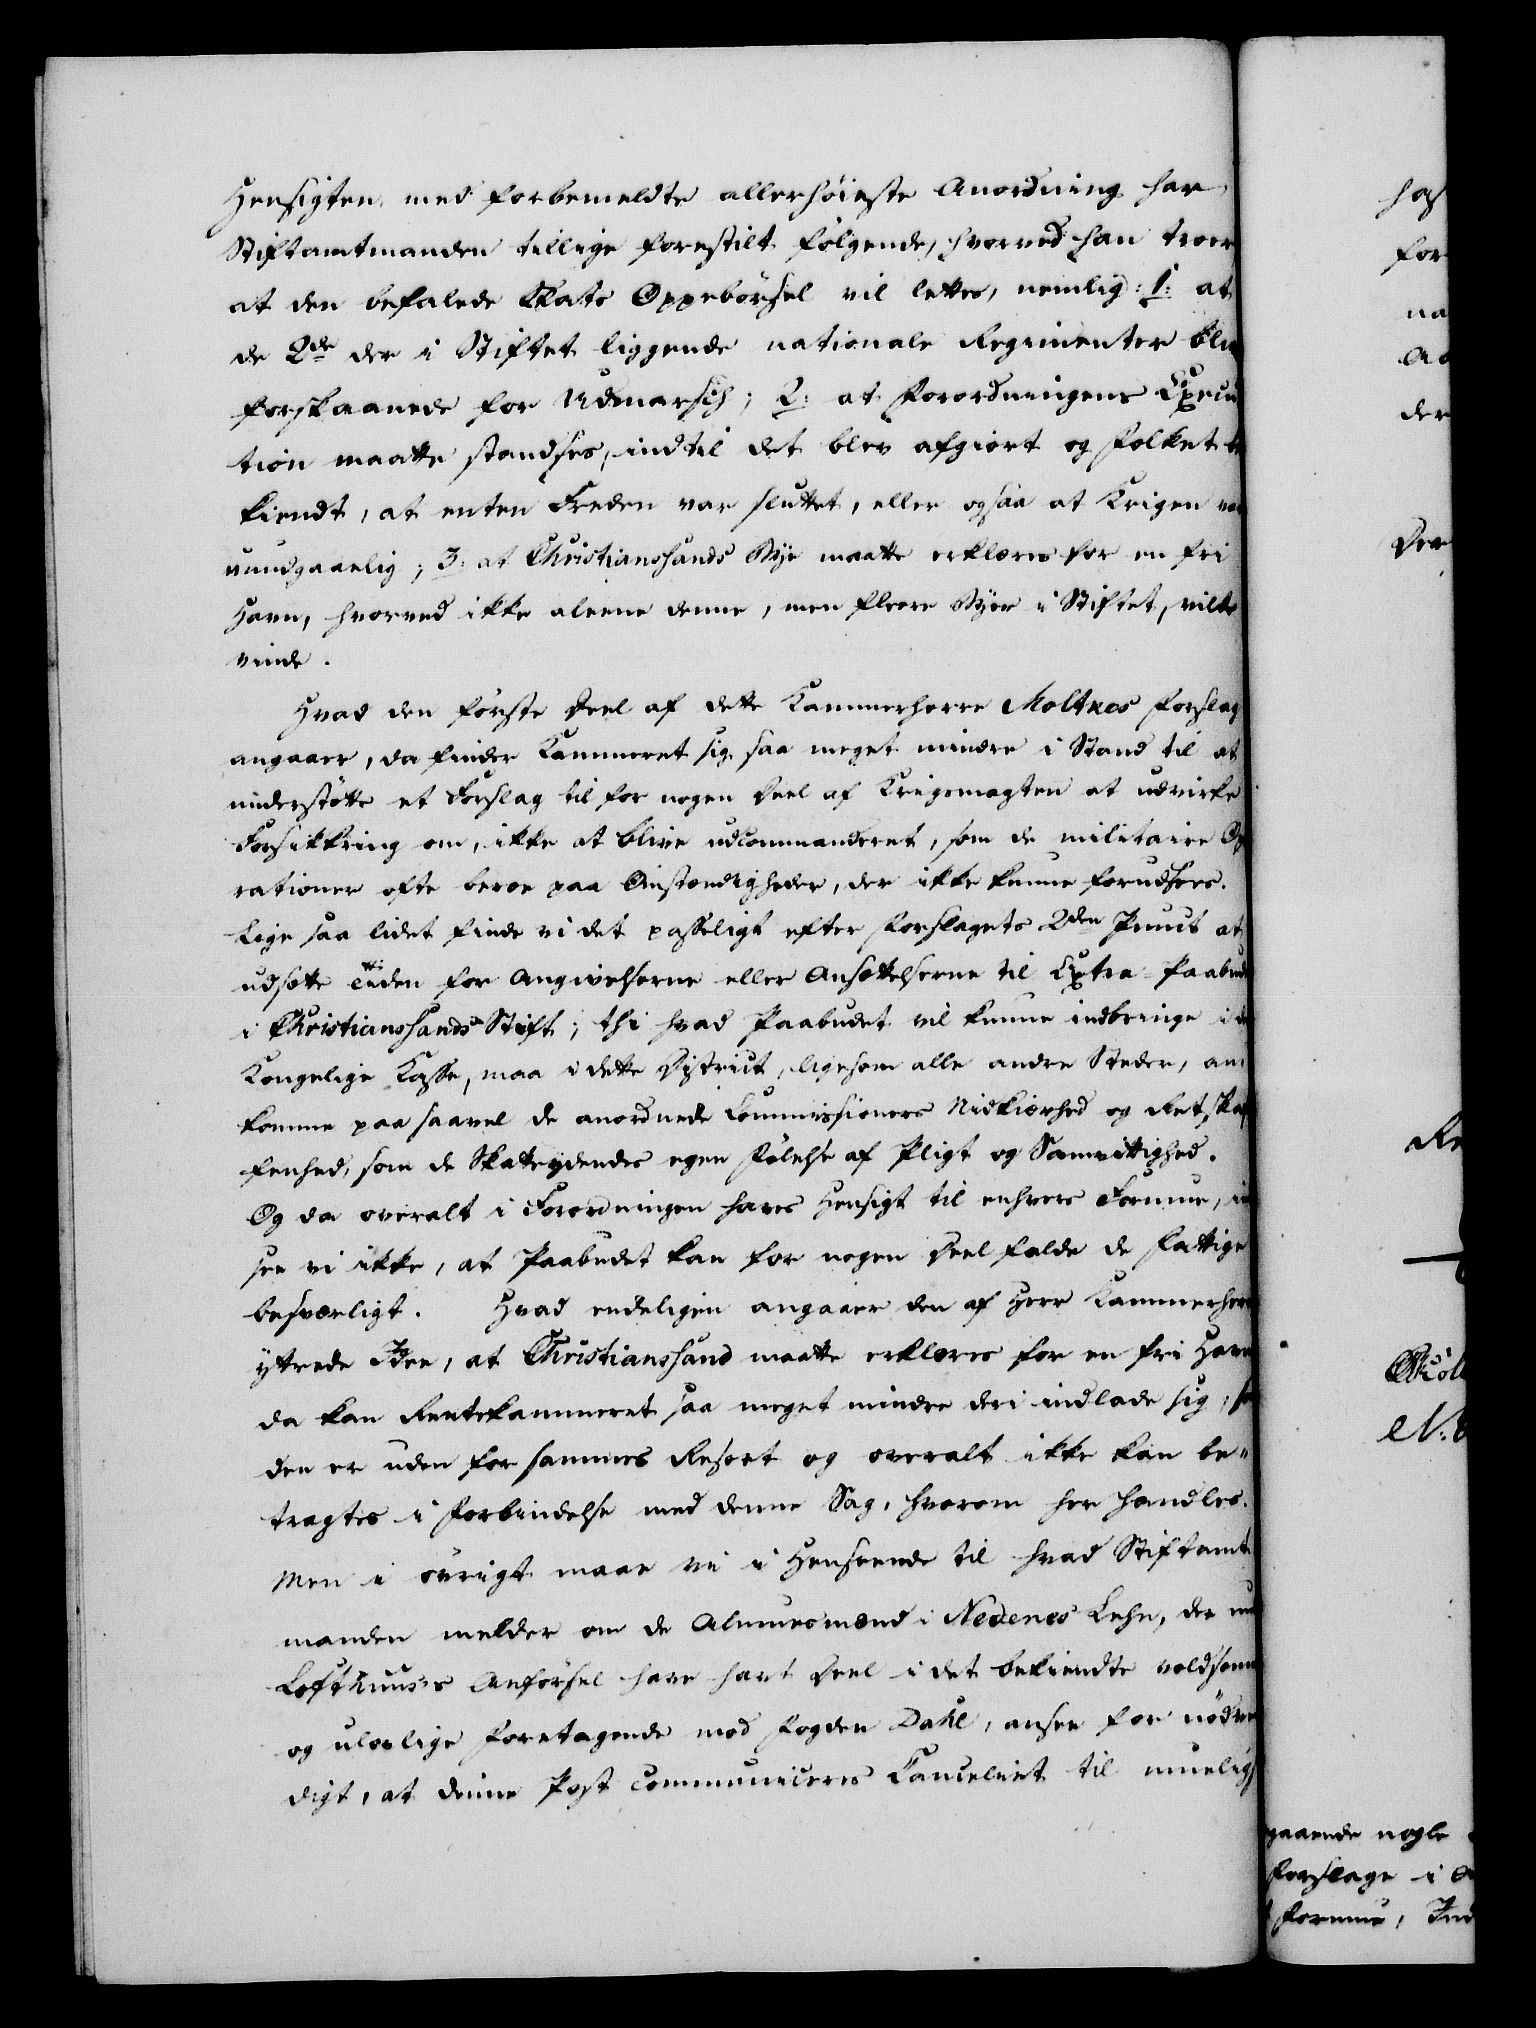 Hensigten med forbemeldte allerhöieste Anordning har
Stiftamtmanden tillige forestilt følgende, hvorved han troer
at den befalede Skats Oppebörsel vil lettes, nemlig: 1: at
de 2de der i Stiftet liggende nationale Regimenter blev
forskaanede for Udmarsch; 2: at Forordningens Execu
tion maatte standses, indtil det blev afgiort og Folket be
kiendt, at enten Freden var sluttet, eller ogsaa at Krigen var
uundgaaelig; 3: at Christianssands Bye maatte erklæres for en fri
Havn, hvorved ikke aleene denne, men fleere Byer i Stiftet, vilde
vinde.
Hvad den første Deel af dette Kammerherre Moltkes Forslag
angaaer, da finder Kammeret sig saa meget mindre i Stand til at
understøtte et Forslag til for nogen Deel af Krigsmagten at udvirke
Forsikkring om, ikke at blive udcommanderet, som de militaire Op
rationer ofte beroe paa Omstændigheder, der ikke kunne forudsees.
Lige saa lidet finde vi det passeligt efter Forslagets 2den Punct at
udsætte Tiden for Angivelserne eller Ansættelserne til Extra-Paabud
i Christianssands Stift; thi hvad Paabudet vil kunne indbringe i de
Kongelige Kasse, maa i dette District, ligesom alle andre Steder, an
komme paa saavel de anordnede Commissioners Nidkierhed og Retskaf
fenhed, som de Skatteydendes egen Følelse af Pligt og Samvittighed.
Og da overalt i Forordningen haves Hensigt til enhvers Formue, in
see vi ikke, at Paabudet kan for nogen Deel falde de Fattige
besværligt. Hvad endeligen angaaer den af Herr Kammerherre
yttrede Idee, at Christianssand maatte erklæres for en fri Havn
da kan Rentekammeret saa meget mindre deri indlade sig, so
den er uden for sammes Resort og overalt ikke kan be-
tragtes i Forbindelse med denne Sag, hvorom her handles.
Men i øvrigt maae vi i Henseende til hvad Stiftamt
manden melder om de Almuesmænd i Nedenes Lehn, der un
Lofthuus's Anførsel have havt Deel i det bekiendte voldsomme
og ulovlige Foretagende mod Fogden Dahl, ansee for nødven
digt, at denne Post communiceres Cancelliet til mueligs
has
for
na
der
Re
gaaende nogle
Forslage i
Formue, Ind